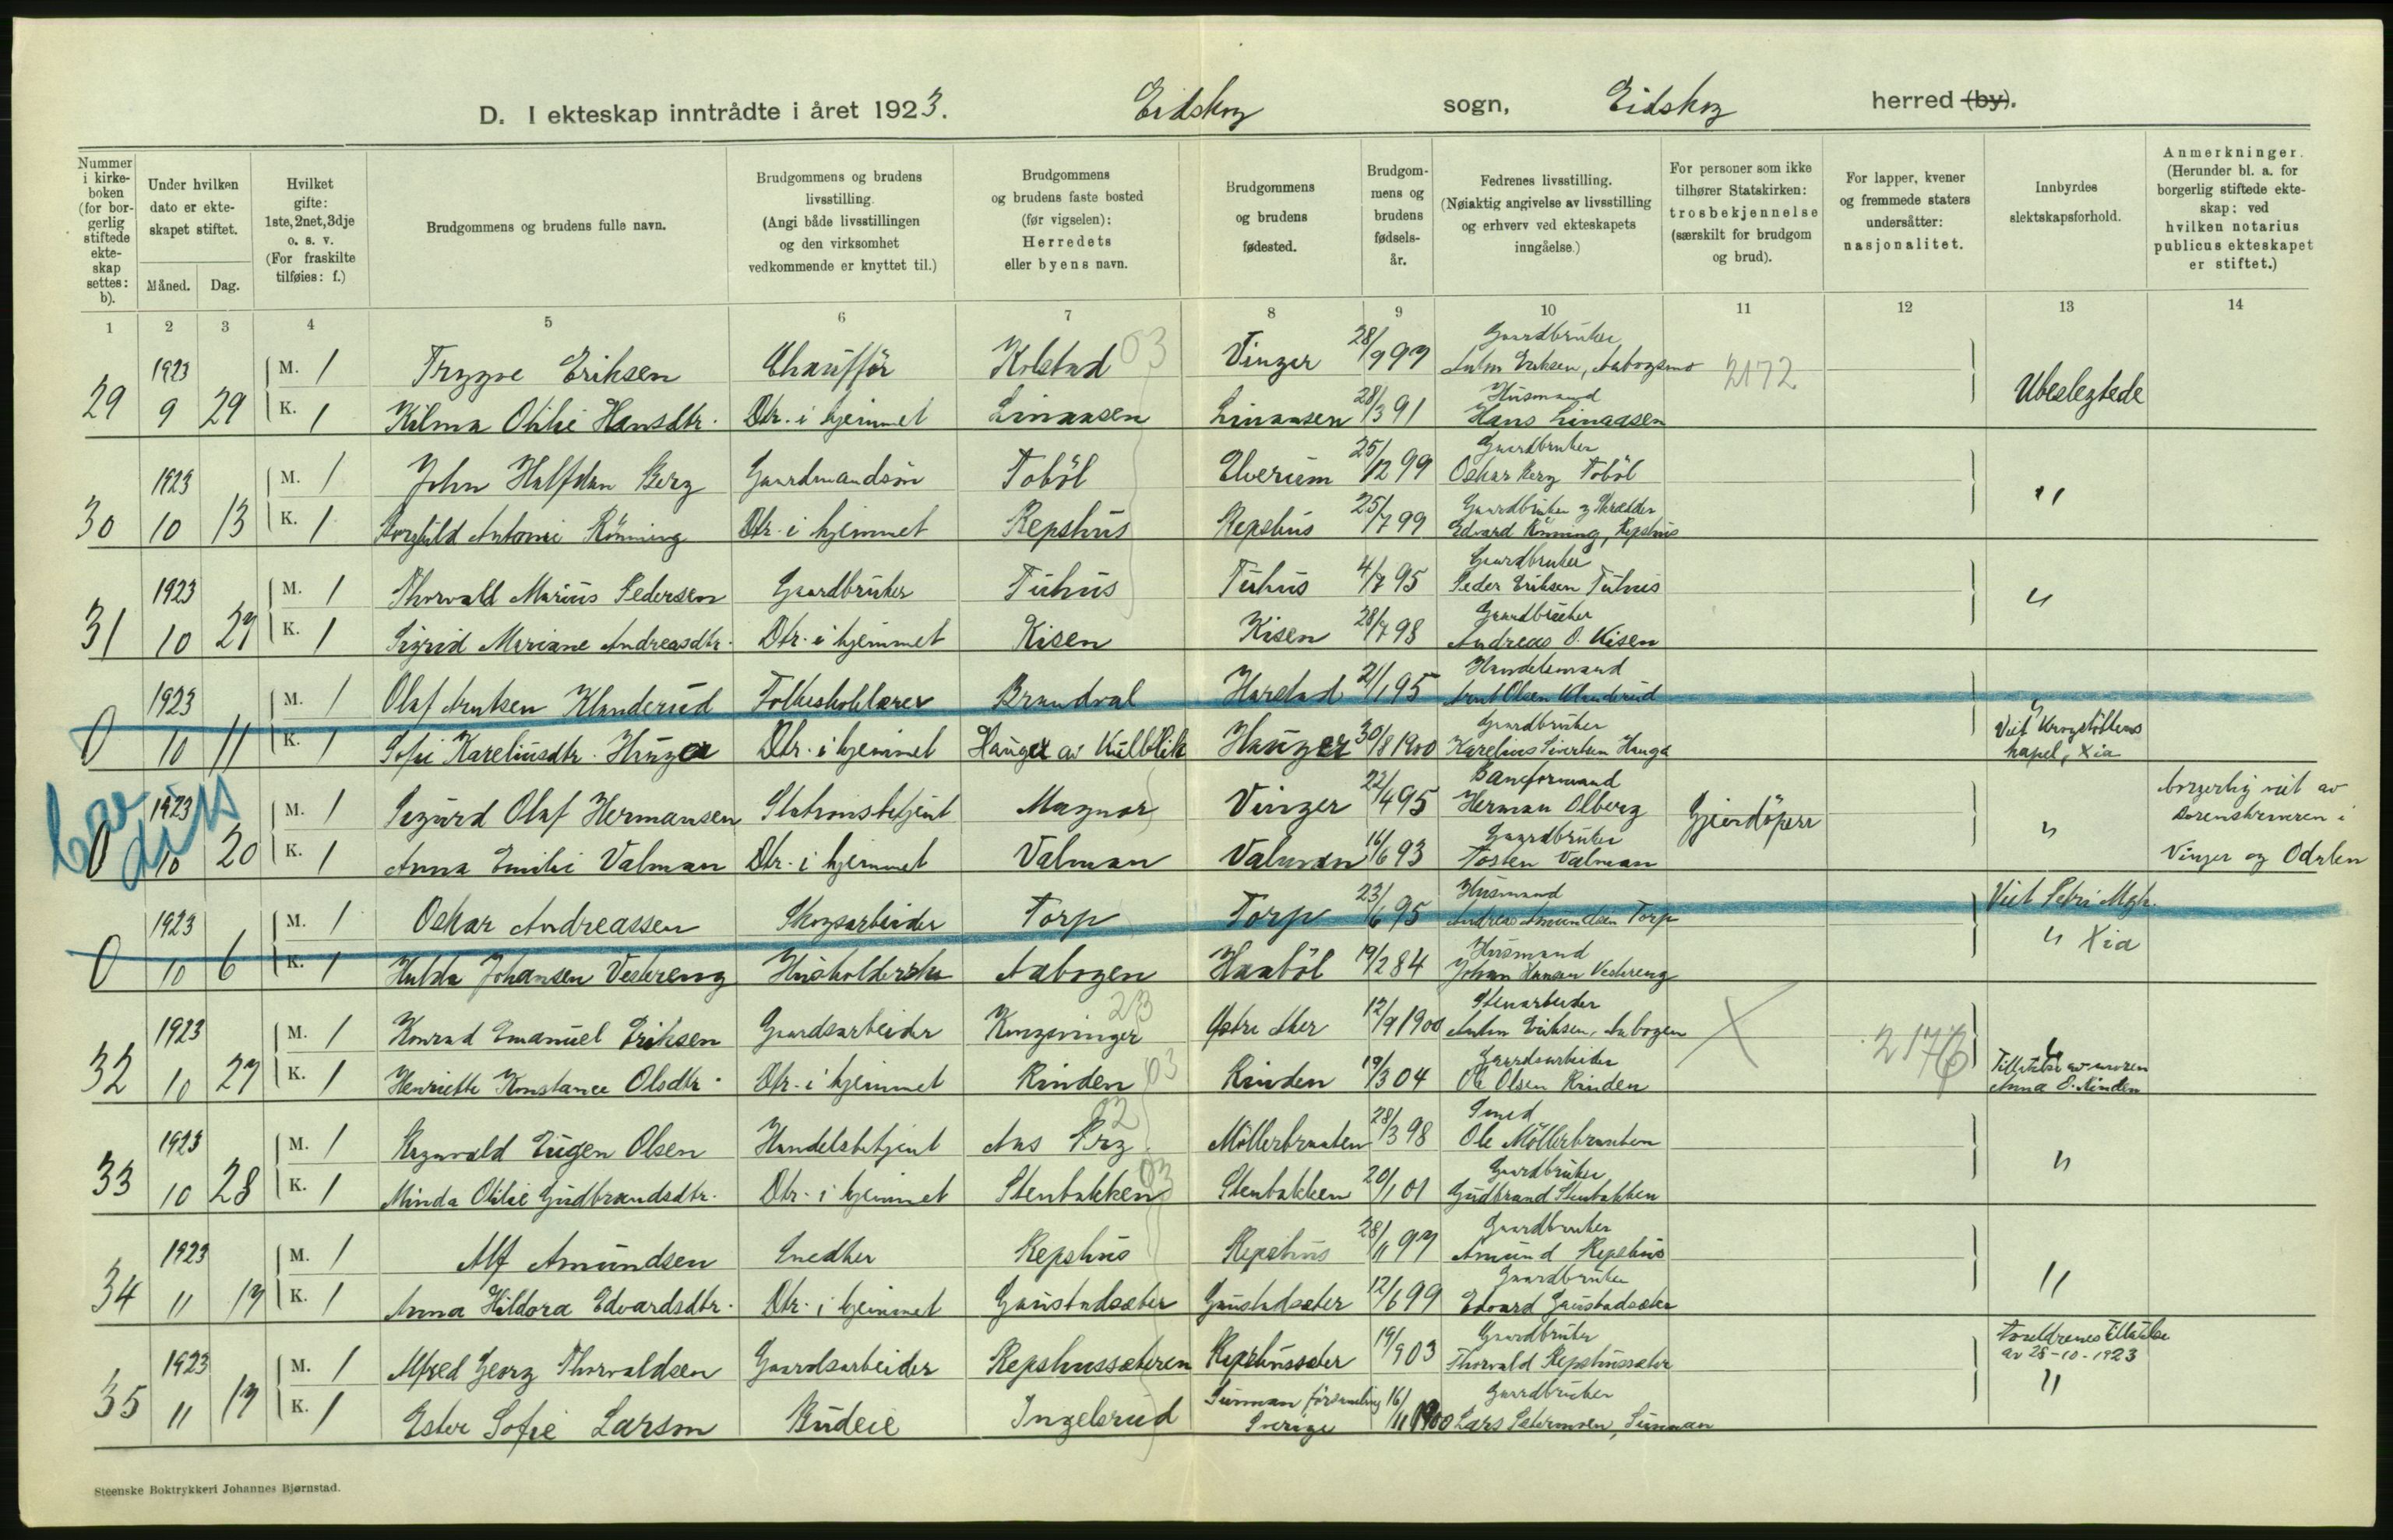 D. I ekteskap inntrådte i året 1923. Eidskog sogn, Eidskog herred (by).
Nummer i kirkeboken (for borgerlig stiftede ekteskap settes: b).
Under hvilken dato er ekteskapet stiftet.
Måned. Dag.
Hvilket gifte: 1ste, 2net, 3dje o. s. v. (For fraskilte tilføies: f.)
Brudgommens og brudens fulle navn.
Brudgommens og brudens livsstilling. (Angi både livsstillingen og den virksomhet vedkommende er knyttet til.)
Brudgommens og brudens faste bosted (før vigselen): Herredets eller byens navn.
Brudgommens og brudens fødested.
Brudgommens og brudens fødselsår.
Fedrenes livsstilling. (Nøiaktig angivelse av livsstilling og erhverv ved ekteskapets inngåelse.)
For personer som ikke tilhører Statskirken: trosbekjennelse (særskilt for brudgom og brud).
For lapper, kvener og fremmede staters undersåtter: nasjonalitet.
Innbyrdes slektskapsforhold.
Anmerkninger. (Herunder bl. a. for borgerlig stiftede ekteskap: ved hvilken notarius publicus ekteskapet er stiftet.)
1 2 3 4 5 6 7 8 9 10 11 12 13 14
Gaardbruker
1923 M. 1 Trygve Eriksen Chaufför Kolstad 03 Vinger 28/9 97 Anton Eriksen, Aabogsmo 2172
Husmand
29 9 29 K. 1 Kilma Otilie Hansdtr. Dtr. i hjemmet Linaasen Linaasen 28/3 91 Hans Linaasen Ubeslegtede
Gaardbruker
1923 M. 1 John Halfdan Berg Gaardmandsön Toböl Elverum 25/12 99 Oskar Berg Toböl
Gaardbruker og Skrædder
30 10 13 K. 1 Borghild Antonie Rönning Dtr. i hjemmet Repshus Repshus 25/7 99 Edvard Rönning, Repshus "
Gaardbruker
1923 M. 1 Thorvald Marius Pedersen Gaardbruker Tuhus Tuhus 4/7 95 Peder Eriksen Tuhus
Gaardbruker
31 10 27 K. 1 Sigrid Mariane Andreasdtr. Dtr. i hjemmet Kisen Kisen 28/7 98 Andreas O. Kisen "
Handelsmand
1923 M. 1 Olaf Arntsen Klanderud Folkeskolelærer Brandval Harstad 21/1 95 Arnt Olsen Klanderud
Gaardbruker
0 10 11 K. 1 Sofie Kareliusdtr. Hauger Dtr. i hjemmet Hauger av Kulblik Hauger 30/8 1900 Karelius Sivertsen Hauga " Viet Krogstöttens kapel, Xia
Baneformand
1923 M. 1 Sigurd Olaf Hermansen Stationsbetjent Magnor Vinger 22/4 95 Herman Olberg Gjendöper borgerlig viet av
Gaardbruker
0 10 20 K. 1 Anna Emilie Valman Dtr. i hjemmet Valman Valman 16/6 93 Tosten Valman " Sorenskriveren i Vinger og Odalen
Husmand
1923 M. 1 Oskar Andreassen Skogsarbeider Torp Torp 23/6 95 Andreas Amundsen Torp Viet Petri Mgh.
Husmand
0 10 6 K. 1 Hulda Johansen Vestereng Husholderske Aabogen Haaböl 19/2 84 Johan Hansen Vestereng " Xia
Stenarbeider
1923 M. 1 Konrad Emanuel Eriksen Gaardsarbeider Kongsvinger 23 Östre Aker 12/9 1900 Anton Eriksen, Aabogen 2176
Gaardsarbeider
32 10 27 K. 1 Henriette Konstance Olsdtr. Dtr. i hjemmet Rinden 03 Rinden 19/3 04 Ole Olsen Rinden " Tillatelse av moren Anna E. Rinden
Smed
1923 M. 1 Ragnvald Eugen Olsen Handelsbetjent Aas Prg. 02 Möllerbraaten 28/3 98 Ole Möllerbraaten
Gaardbruker
33 10 28 K. 1 Minda Otilie Gudbrandsdtr. Dtr. i hjemmet Stenbakken 03 Stenbakken 20/1 01 Gudbrand Stenbakken "
Gaardbruker
1923 M. 1 Alf Amundsen Snedker Repshus Repshus 28/11 97 Amund Repshus
Gaardbruker
34 11 17 K. 1 Anna Hildora Edvardsdtr. Dtr. i hjemmet Gaustadsæter Gaustadsæter 12/6 99 Edvard Gaustadsæter "
Gaardbruker
1923 M. 1 Alfred Georg Thorvaldsen Gaardsarbeider Repshussæteren Repshussæter 19/9 03 Thorvald Repshussæter Foreldrenes tillatelse av 25-10-1923
Gaardbruker
35 11 17 K. 1 Ester Sofie Larson Budeie Ingelsrud Sunman församling Sverige 16/11 1900 Lars Sætermoen, Sunman "
Steenske Boktrykkeri Johannes Bjørnstad.